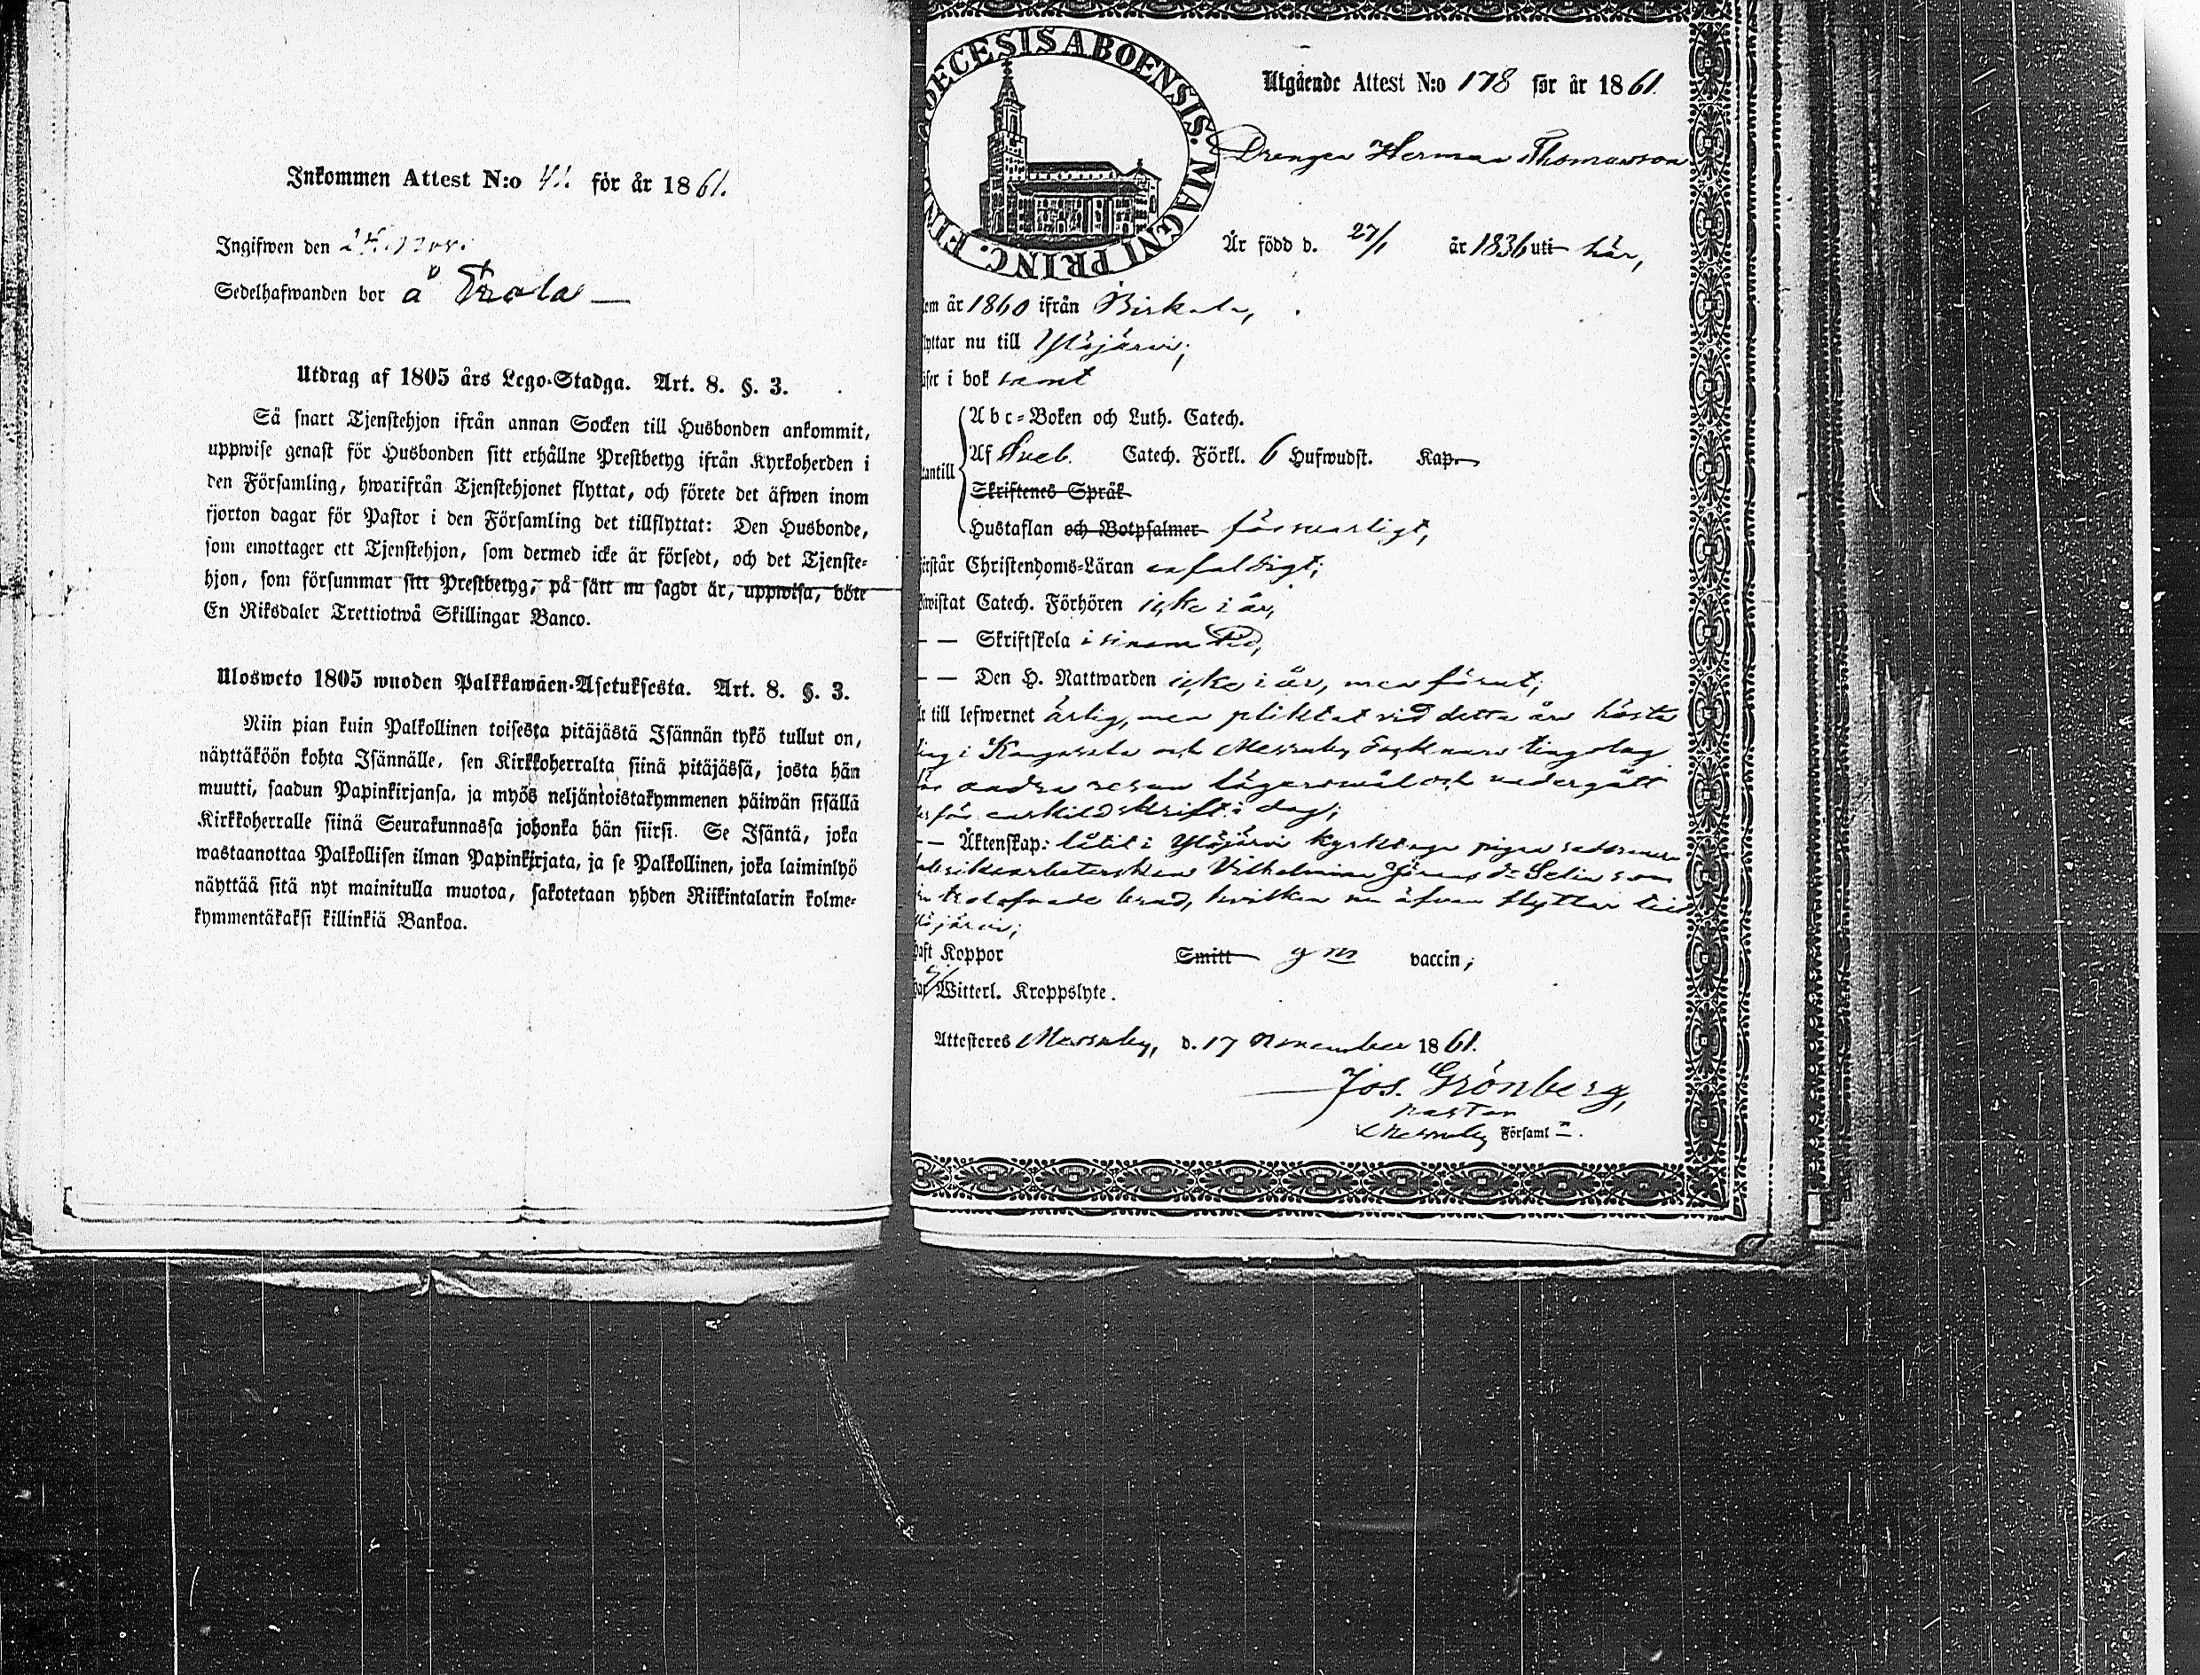 Inkommen Attest N:o 41. för år 1861.
Ingifwen den 24. Nov.
Sedelhafwanden bor å Trola
Utdrag af 1805 års Lego-Stadga. Art. 8. §. 3.
Så snart Tjenstehjon ifrån annan Socken till Husbonden ankommit,
uppwise genast för Husbonden sitt erhållne Prestbetyg ifrån Kyrkoherden i
den Församling, hwarifrån Tjenstehjonet flyttat, och förete det äfwen inom
fjorton dagar för Pastor i den Församling det tillflyttat: Den Husbonde,
som emottager ett Tjenstehjon, som dermed icke är försedt, och det Tjenste-
hjon, som försummar sitt Prestbetyg, på sätt nu sagdt är, uppwisa, böte
En Riksdaler Trettiotwå Skillingar Banco.
Ulosweto 1805 wuoden Palkkawäen-Asetuksesta. Art. 8. §. 3.
Niin pian kuin Palkollinen toisesta pitäjästä Isännän tykö tullut on,
näyttäköön kohta Isännälle, sen Kirkkoherralta siinä pitäjässä, josta hän
muutti, saadun Papinkirjansa, ja myös neljäntoistakymmenen päiwän sisällä
Kirkkoherralle siinä Seurakunnassa johonka hän siirsi. Se Isäntä, joka
wastaanottaa Palkollisen ilman Papinkirjata, ja se Palkollinen, joka laiminlyö
näyttää sitä nyt mainitulla muotoa, sakotetaan yhden Riikintalarin kolme-
kymmentäkaksi killinkiä Bankoa.
DECESIS ABOENSIS. MAGNI PRINC. FIN
Utgående Attest N:o 178 för år 1861.
Drengen Herman Thomasson
Är född d. 27/1 år 1836 uti här,
kom år 1860 ifrån Birkala,
flyttar nu till Ylöjärvi;
läser i bok samt
Abc-Boken och Luth. Catech.
Af Sveb. Catech. Förkl. 6 Hufwudst. Kap.
utantill
Skriftenes Språk
Hustaflan och Botpsalmer försvarligt,
förstår Christendoms-Läran enfaldigt;
biwistat Catech. Förhören icke i år,
— — Skriftskola i sinom tid,
— — Den H. Nattwarden icke i år, men förut;
är till lefwernet ärlig, men pliktat vid detta års höste
ting i Kangasala och Messuby socknars tingslag
för andra resan lägersmål och undergått
derför enskild skrift i dag;
— — Äktenskap: låtit i Ylöjärvi kyrka taga pigan sedermera
fabriksarbeterskan Vilhelmina Jöransd:r Selin som
sin trolofvade brud, hvilken nu äfven flyttar till
Ylöjärvi;
haft Koppor Smitt g m vaccin;
har Witterl. Kroppslyte.
Attesteres Messuby, d. 17 November 1861.
Jos. Grönberg,
Pastor
i Messuby Församl:n.